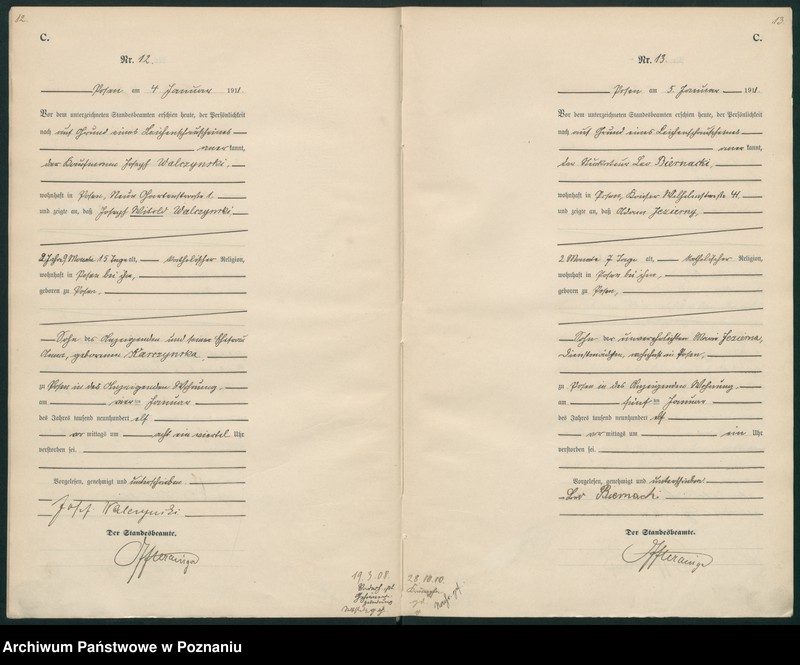 12.
C.
Nr. 12.
Posen am 4 Januar 1911.
Vor dem unterzeichneten Standesbeamten erschien heute, der Persönlichkeit
nach auf Grund eines Leichenschauscheines
kannt,
der Kaufmann Joseph Walczynski,
wohnhaft in Posen, Neue Gartenstrasse 1.
und zeigte an, daß Joseph Witold Walczynski,
2 Jahr 9 Monate 15 Tage alt, katholischer Religion,
wohnhaft in Posen bei ihm,
geboren zu Posen,
Sohn des Anzeigenden und seiner Ehefrau
Anna, geborenen Karczynska,
zu Posen in des Anzeigenden Wohnung
am vier ten Januar
des Jahres tausend neunhundert elf
vor mittags um acht ein viertel Uhr
verstorben sei.
Vorgelesen, genehmigt und unterschrieben
Josef Walczynski
Der Standesbeamte.
19.3.08.
13.
C.
Nr. 13.
Posen am 5. Januar 1911.
Vor dem unterzeichneten Standesbeamten erschien heute, der Persönlichkeit
nach auf Grund eines Leichenschauscheines
kannt,
der Leo Biernacki,
wohnhaft in Posen, Wilhelmstrasse 41.
und zeigte an, daß Adam Jezierny,
2 Monate 7 Tage alt, katholischer Religion,
wohnhaft in Posen bei ihm,
geboren zu Posen,
Sohn der unverehelichten Maria Jezierna,
Dienstmädchen, wohnhaft in Posen,
zu Posen in des Anzeigenden Wohnung
am fünf ten Januar
des Jahres tausend neunhundert elf
vor mittags um ein Uhr
verstorben sei.
Vorgelesen, genehmigt und unterschrieben
Leo Biernacki
Der Standesbeamte.
28.10.10.
Archiwum Państwowe w Poznaniu